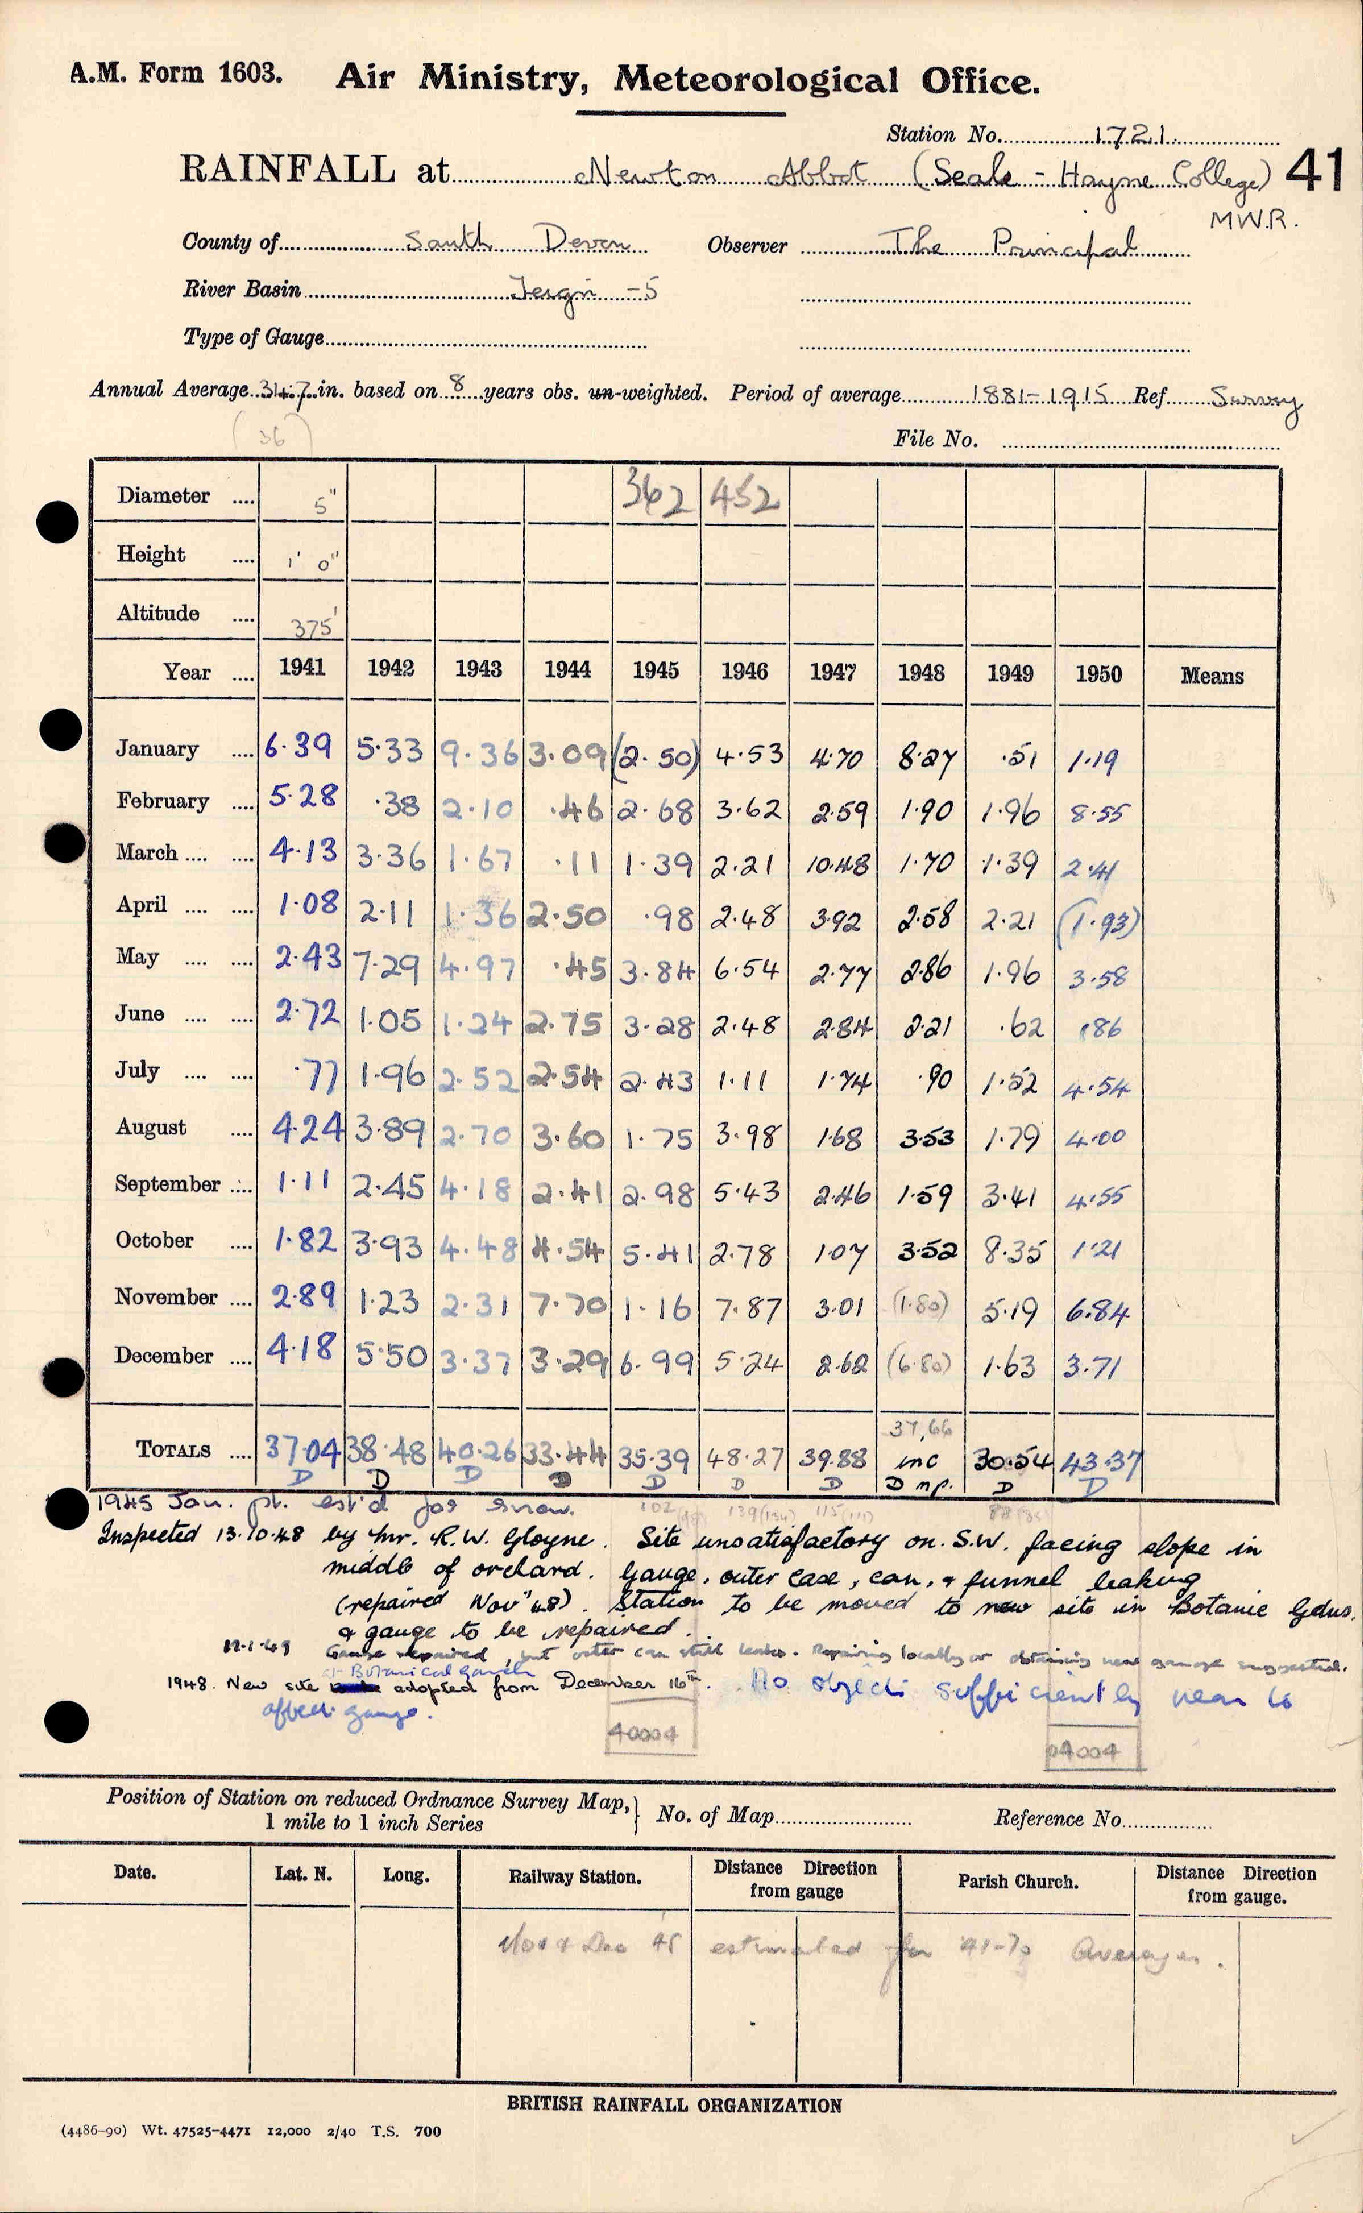 A.M. Form 1603. Air Ministry, Meteorological Office.
Station No. 1721.
RAINFALL at Newton Abbot (Seale-Hayne College) 41
MWR.
County of South Devon Observer The Principal
River Basin Teign -5
Type of Gauge
Annual Average 34.7 in. based on 8 years obs. un-weighted. Period of average 1881-1915 Ref Survey
(36)
File No.
Diameter .... 5" 362 452
Height .... 1' 0"
Altitude .... 375'
Year .... 1941 1942 1943 1944 1945 1946 1947 1948 1949 1950 Means
January .... 6.39 5.33 9.36 3.09 (2.50) 4.53 4.70 8.27 .51 1.19
February .... 5.28 .38 2.10 .46 2.68 3.62 2.59 1.90 1.96 8.55
March .... .... 4.13 3.36 1.67 .11 1.39 2.21 10.48 1.70 1.39 2.41
April .... .... 1.08 2.11 1.36 2.50 .98 2.48 3.92 2.58 2.21 (1.93)
May .... .... 2.43 7.29 4.97 .45 3.84 6.54 2.77 2.86 1.96 3.58
June .... .... 2.72 1.05 1.24 2.75 3.28 2.48 2.84 2.21 .62 .86
July .... .... .77 1.96 2.52 2.54 2.43 1.11 1.74 .90 1.52 4.54
August .... 4.24 3.89 2.70 3.60 1.75 3.98 1.68 3.53 1.79 4.00
September .... 1.11 2.45 4.18 2.41 2.98 5.43 2.46 1.59 3.41 4.55
October .... 1.82 3.93 4.48 4.54 5.41 2.78 1.07 3.52 8.35 1.21
November .... 2.89 1.23 2.31 7.70 1.16 7.87 3.01 (1.80) 5.19 6.84
December .... 4.18 5.50 3.37 3.29 6.99 5.24 2.62 (6.80) 1.63 3.71
37,66
TOTALS .... 37.04 38.48 40.26 33.44 35.39 48.27 39.88 inc 30.54 43.37
D D D D D D D D np. D D
1945 Jan. pt. est'd for snow. 102 139 (134) 115 (111) 88
Inspected 13.10.48 by Mr. R.W. Gloyne. Site unsatisfactory on S.W. facing slope in
middle of orchard. Gauge, outer case, can, & funnel leaking
(repaired Nov '48). Station to be moved to new site in Botanic Gdns.
& gauge to be repaired.
12.1.49 Gauge repaired, but outer can still leaks. Repairing locally or obtaining new gauge suggested.
Botanical Garden
1948. New site adopted from December 16th. No objects sufficiently near to
affect gauge.
40004 04004
Position of Station on reduced Ordnance Survey Map, } No. of Map Reference No.
1 mile to 1 inch Series
Date. Lat. N. Long. Railway Station. Distance Direction from gauge Parish Church. Distance Direction from gauge.
Nov & Dec 48 estimated for '41-70 Averages.
BRITISH RAINFALL ORGANIZATION
(4486-90) Wt. 47525-4471 12,000 2/40 T.S. 700